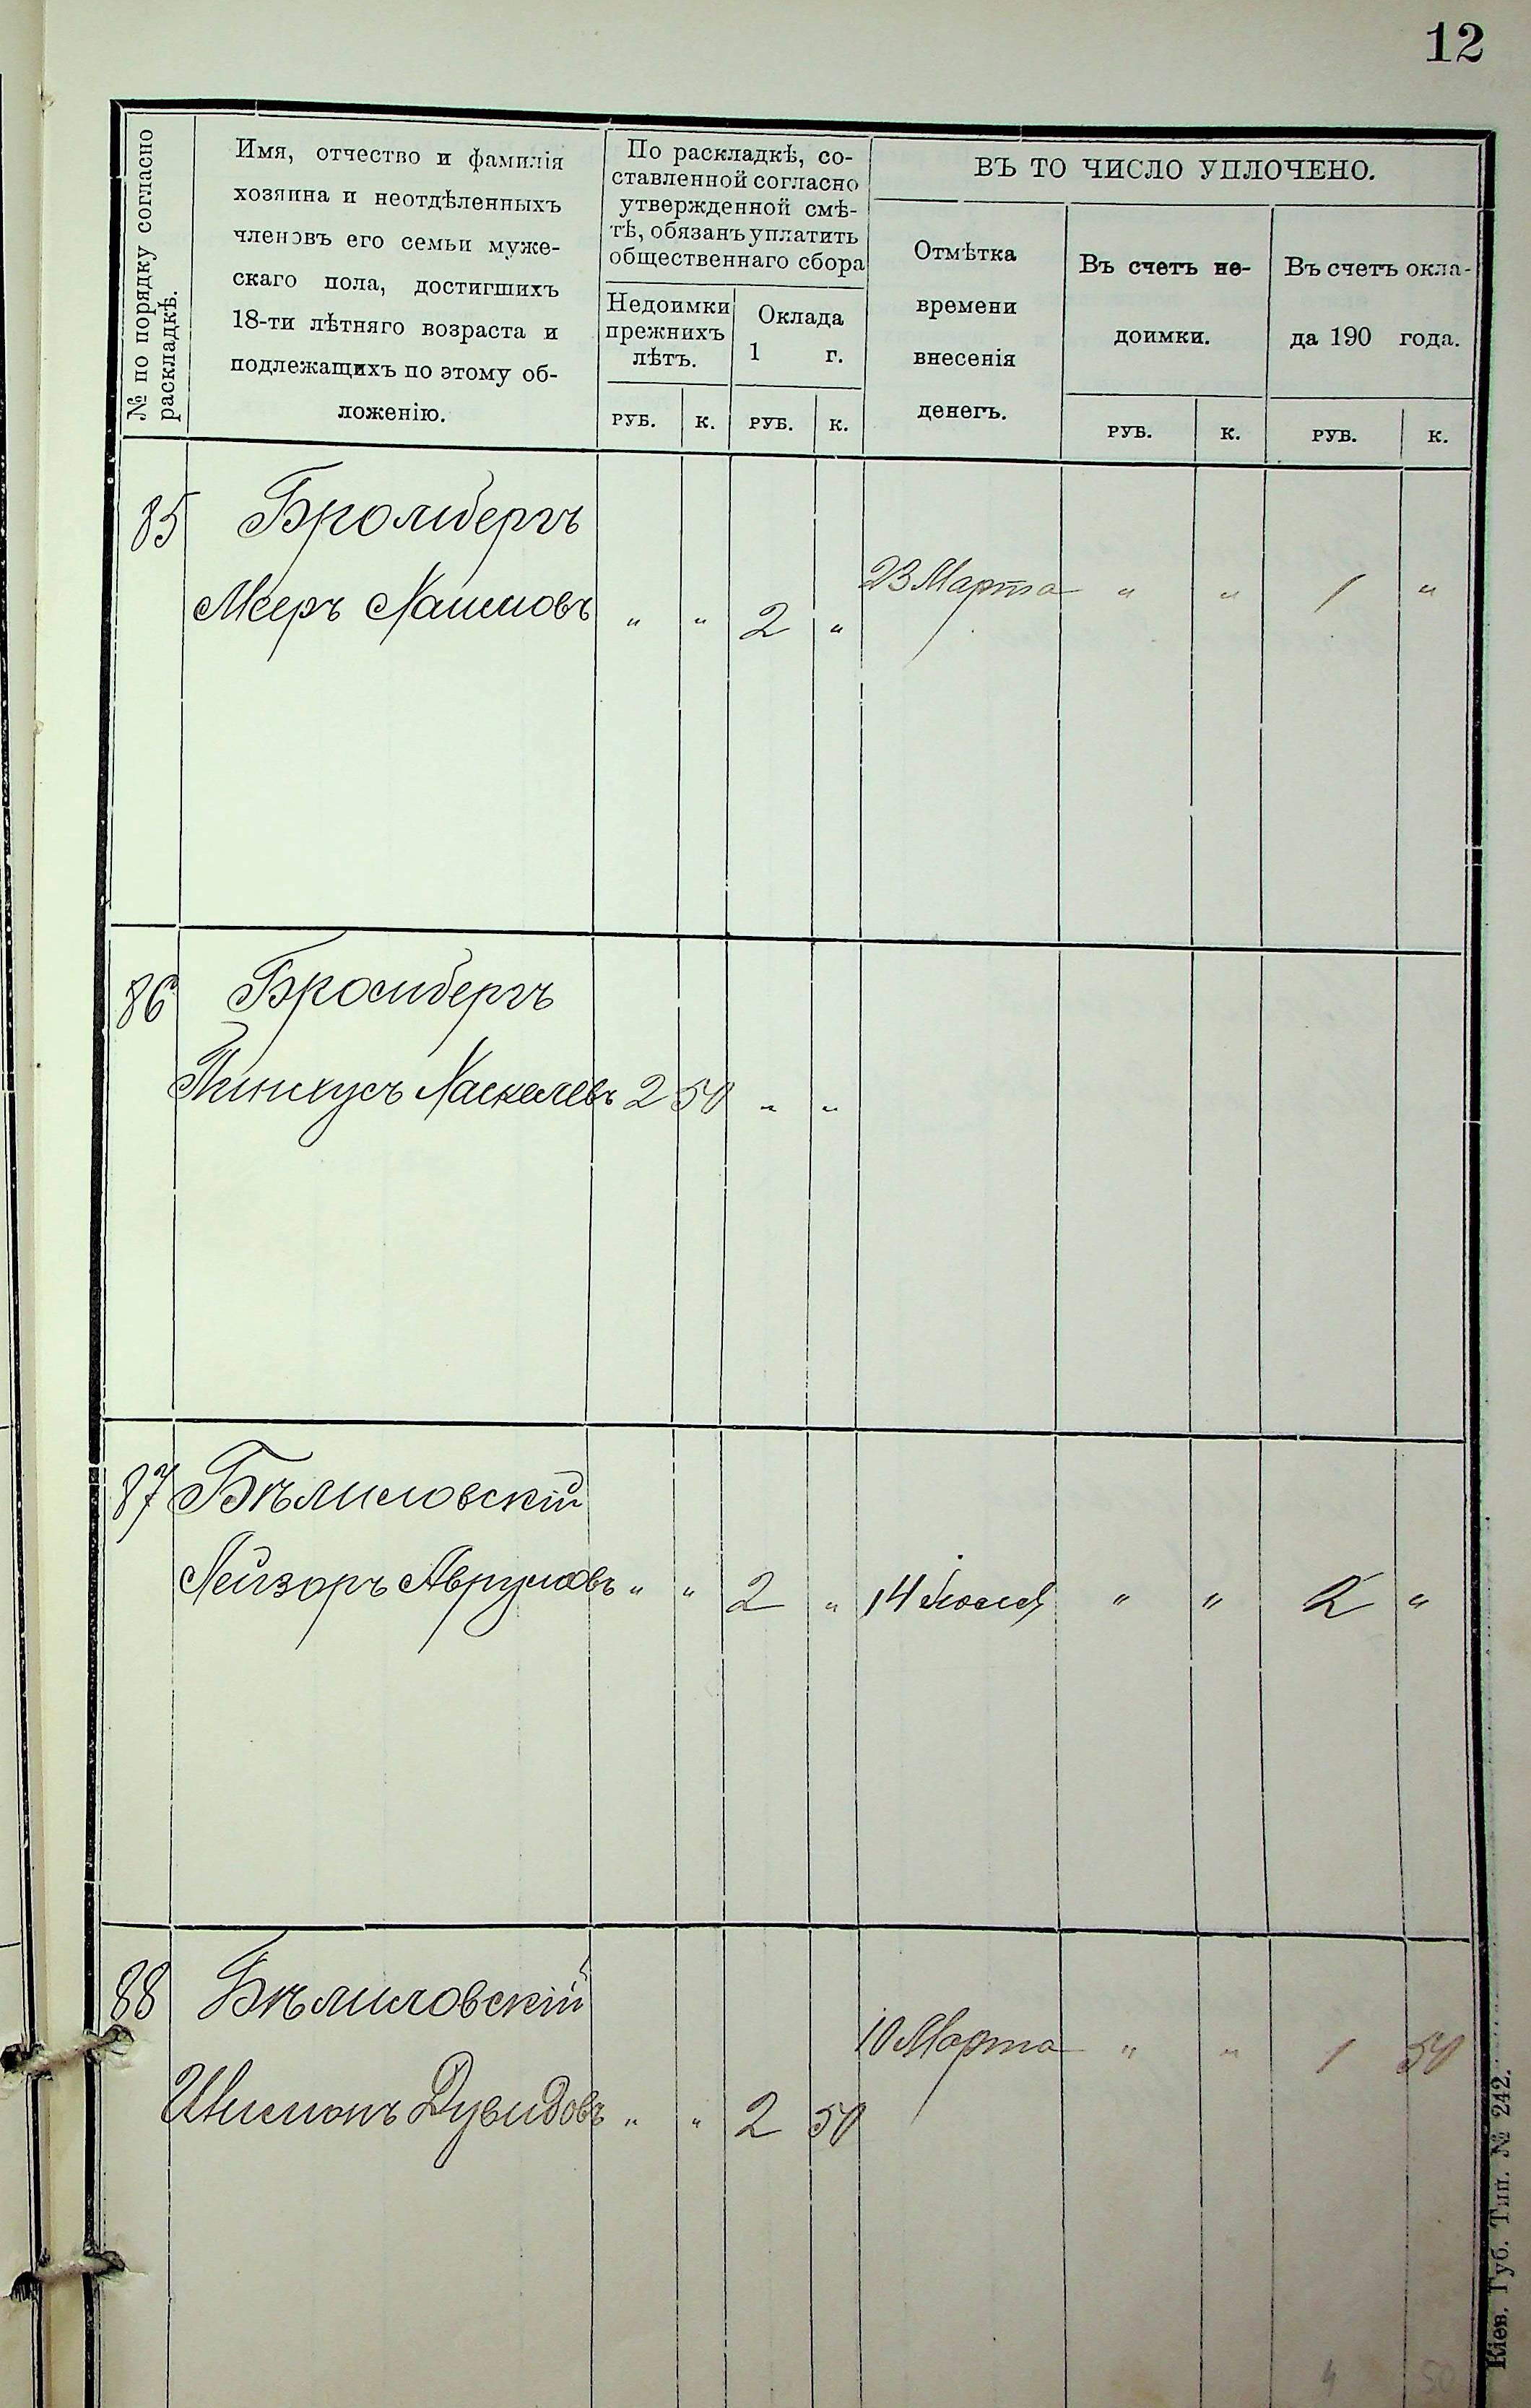 12
№ по порядку согласно
раскладкѣ.
Имя, отчество и фамилія
хозяина и неотдѣленныхъ
членовъ его семьи муже-
скаго пола, достигшихъ
18-ти лѣтняго возраста и
подлежащихъ по этому об-
ложенію.
По раскладкѣ, со-
ставленной согласно
утвержденной смѣ-
тѣ, обязанъ уплатить
общественнаго сбора
Недоимки
прежнихъ
лѣтъ.
Оклада
1 г.
РУБ. К. РУБ. К.
ВЪ ТО ЧИСЛО УПЛОЧЕНО.
Отмѣтка
времени
внесенія
денегъ.
Въ счетъ не-
доимки.
РУБ. К.
Въ счетъ окла-
да 190 года.
РУБ. К.
85 Бромбергъ
Мееръ Хаимовъ " " 2 " 23 Марта " " 1 "
86 Бромбергъ
Пинхусъ Хаскелевъ 2 50 " "
87 Бѣлиловскій
Лейзоръ Аврумовъ " " 2 " 14 Іюля " " 2 "
88 Бѣлиловскій
Шимонъ Дувидовъ " " 2 50 10 Марта " " 1 50
4 50
Кіев. Губ. Тип. № 242.